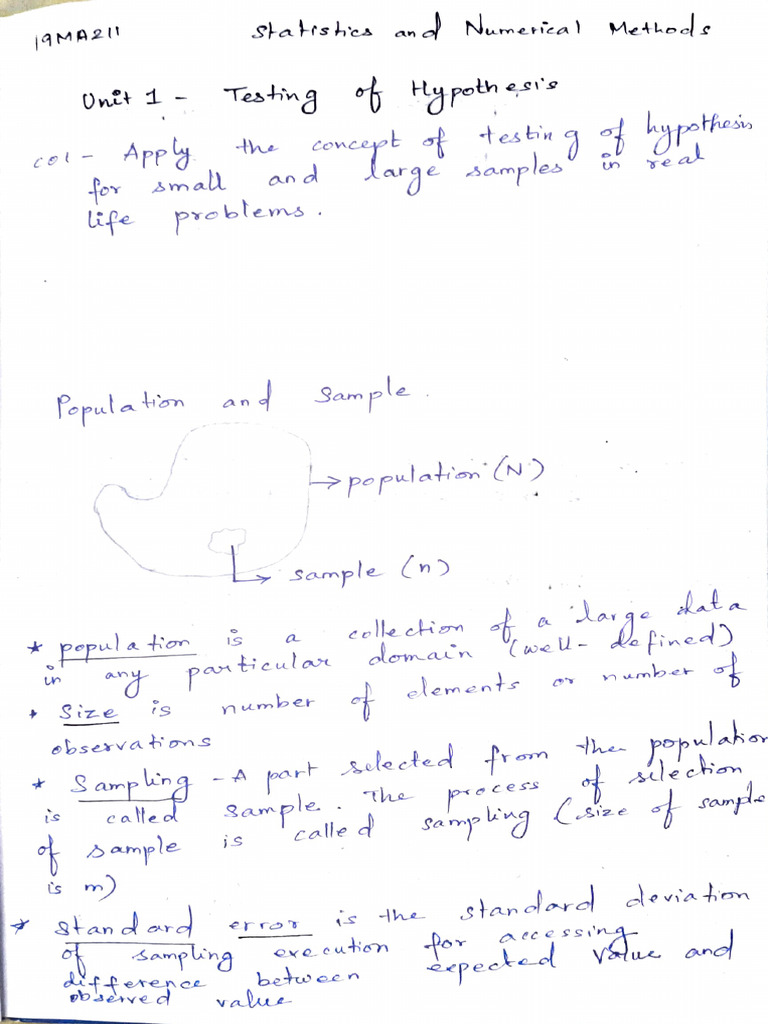 19MA211 Statistics and Numerical Methods
Unit 1 - Testing of Hypothesis
CO1 - Apply the concept of testing of hypothesis
for small and large samples in real
life problems.
Population and Sample.
→ population (N)
→ sample (n)
* population is a collection of a large data
in any particular domain (well-defined)
* Size is number of elements or number of
observations
* Sampling - A part selected from the population
is called sample. The process of selection
of sample is called sampling (size of sample
is m)
* Standard error is the standard deviation
of sampling execution for accessing
difference between expected value and
observed value